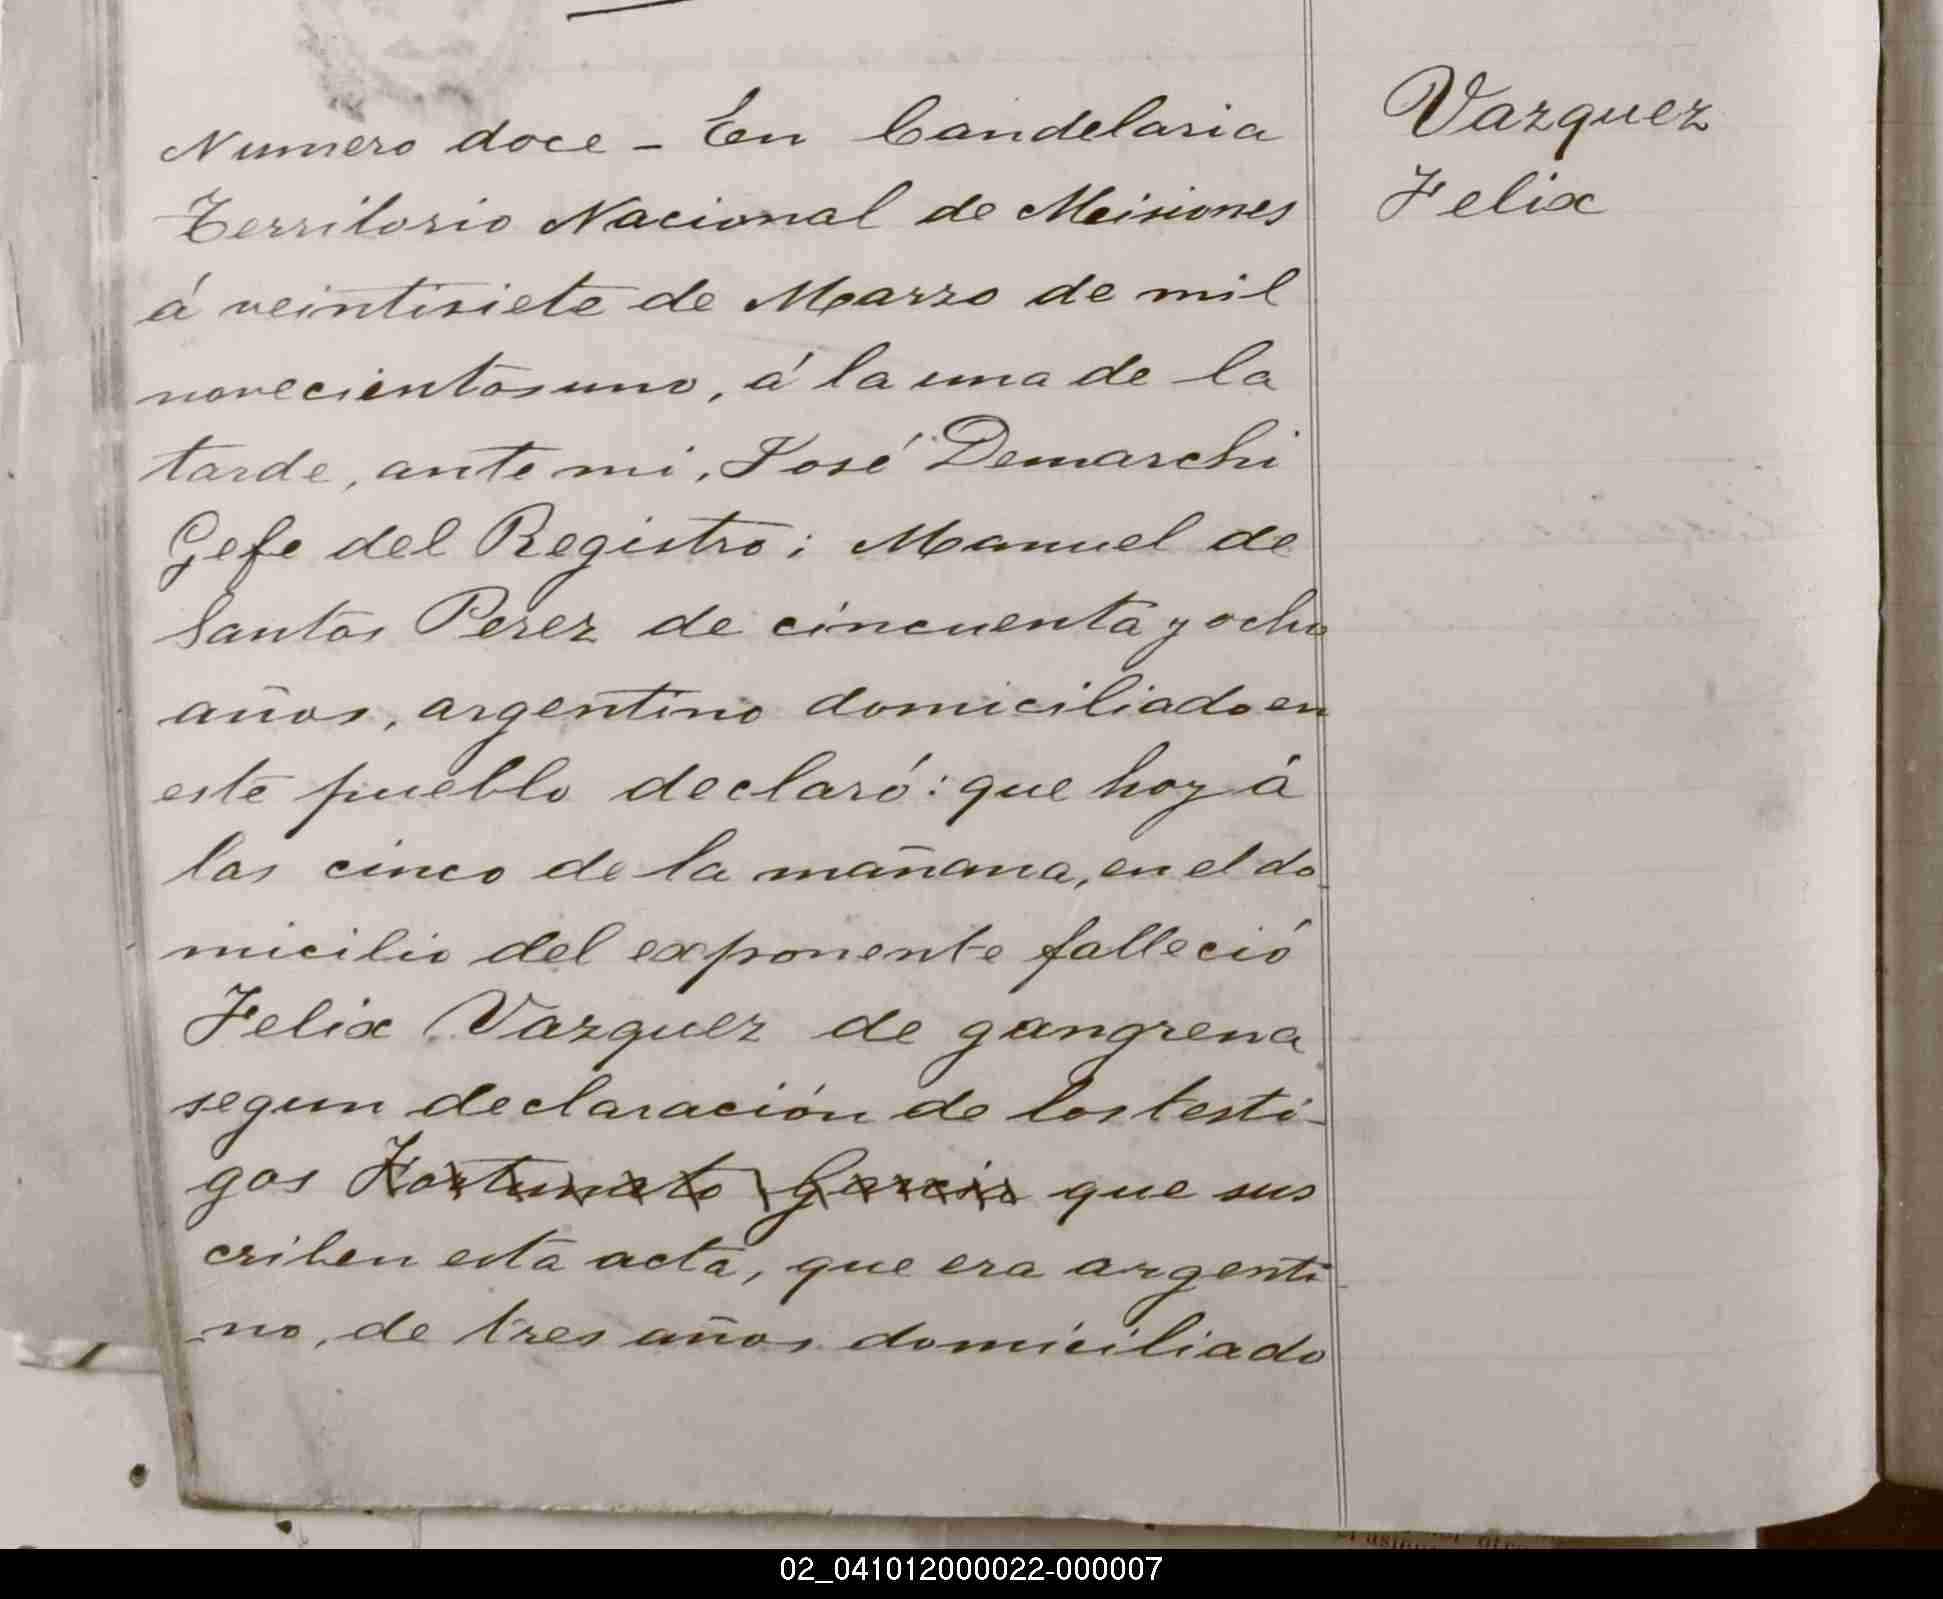 Numero doce - En Candelaria
Territorio Nacional de Meisiones
á veintisiete de Marzo de mil
novecientos uno, á la una de la
tarde, ante mi, José Demarchi
Gefe del Registro; Manuel de
Santos Perez de cincuenta y ocho
años, argentino domiciliado en
este pueblo declaró: que hoy á
las cinco de la mañana, en el do
micilio del exponente falleció
Felix Vazquez de gangrena
segun declaración de los testi-
gos Fortunato Garcia que sus
criben esta acta, que era argenti
no, de tres años domiciliado
Vazquez
Felix
02_041012000022-000007